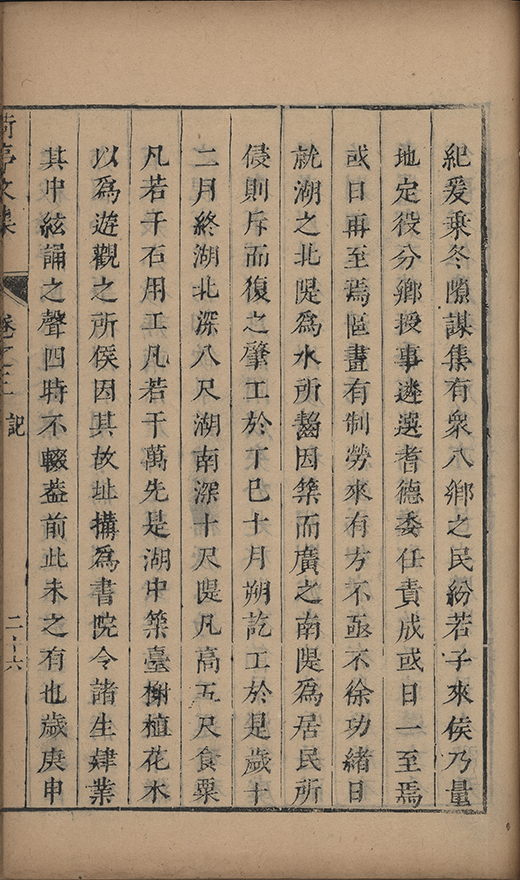 紀爰乘冬隙謀集有衆八鄉之民紛若子來侯乃量
地定役分鄉授事遴選耆德委任責成或日一至焉
或日再至焉區畫有制勞來有方不亟不徐功緒日
就湖之北隄爲水所齧因築而廣之南隄爲居民所
侵則斥而復之肇工於丁巳十月朔訖工於是歲十
二月終湖北深八尺湖南深十尺隄凡高五尺食粟
凡若干石用工凡若干萬先是湖中築臺榭植花木
以爲遊觀之所侯因其故址搆爲書院令諸生肄業
其中絃誦之聲四時不輟葢前此未之有也歲庚申
文集
記
二十六